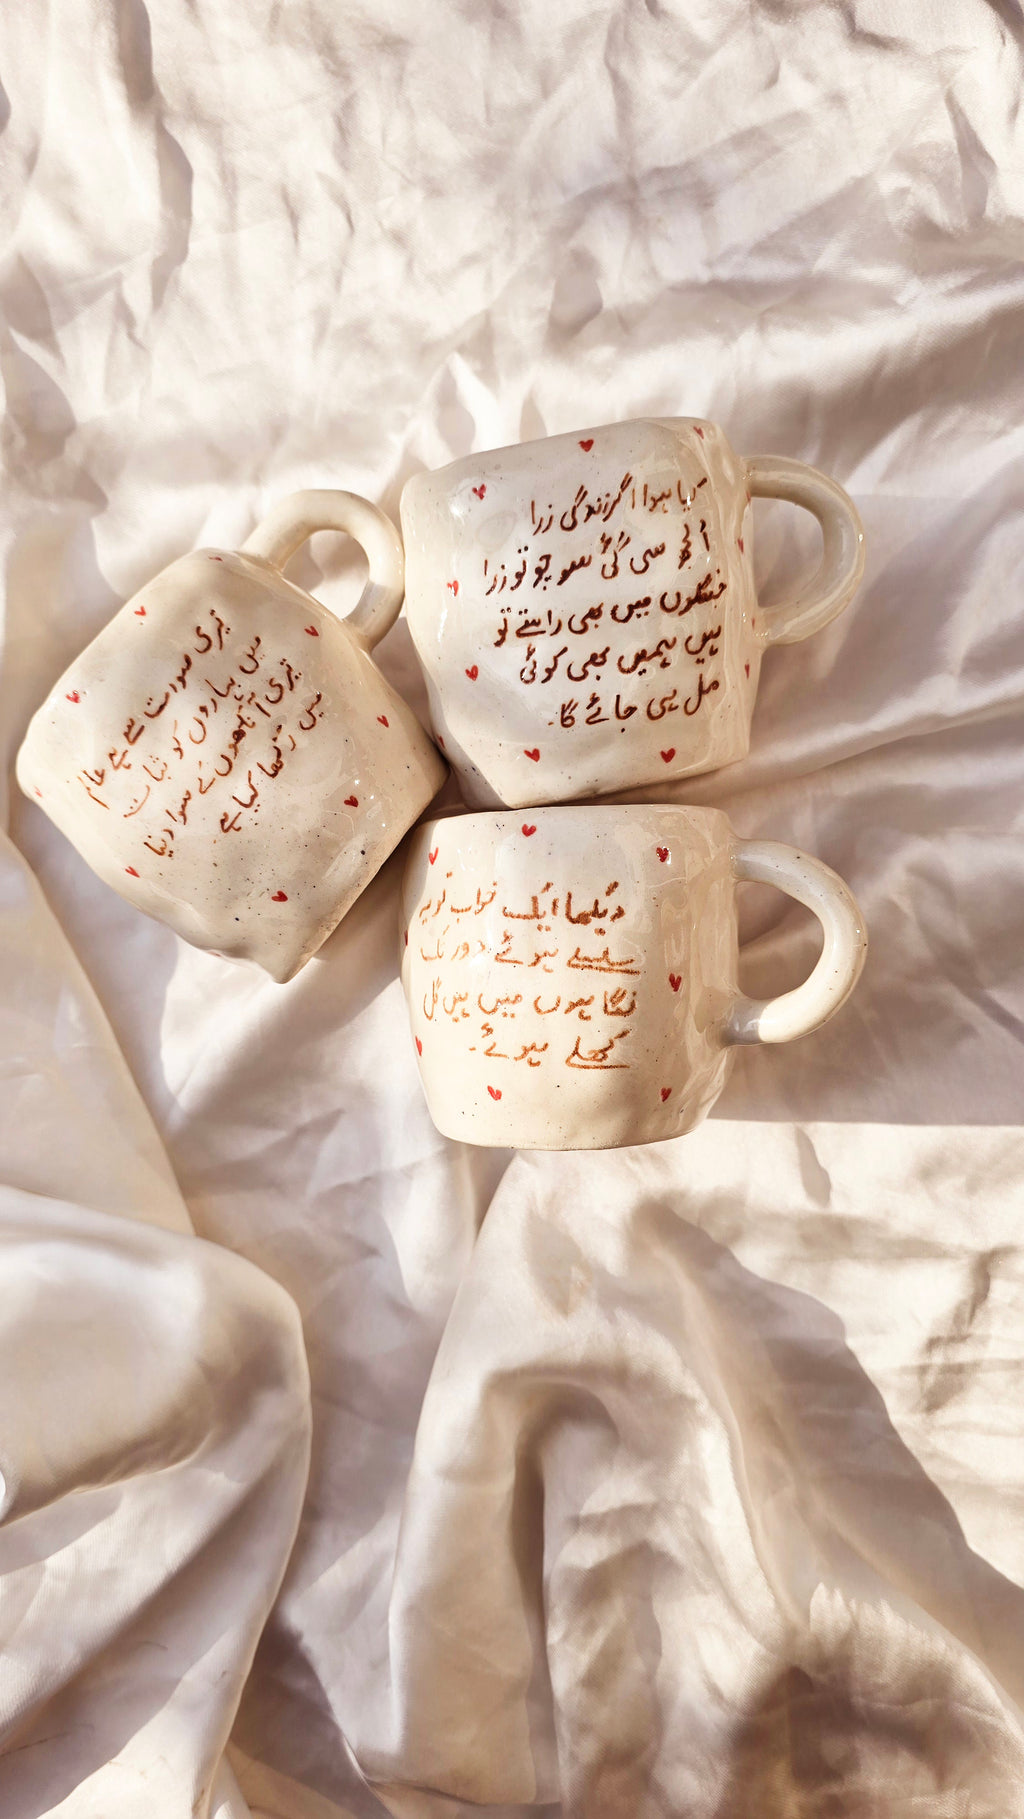 کیا ہوا اگر زندگی ذرا
اُلجھ سی گئی سوچو تو ذرا
جنگلوں میں بھی راستے تو
ہیں ہمیں بھی کوئی
مل ہی جائے گا۔
تیری صورت سے ہے عالم
میں بہاروں کو ثبات
تیری آنکھوں کے سوا دنیا
میں رکھا کیا ہے
دیکھا ایک خواب تو یہ
سلسلے ہوئے دور تک
نگاہوں میں ہیں گل
کھلے ہوئے۔